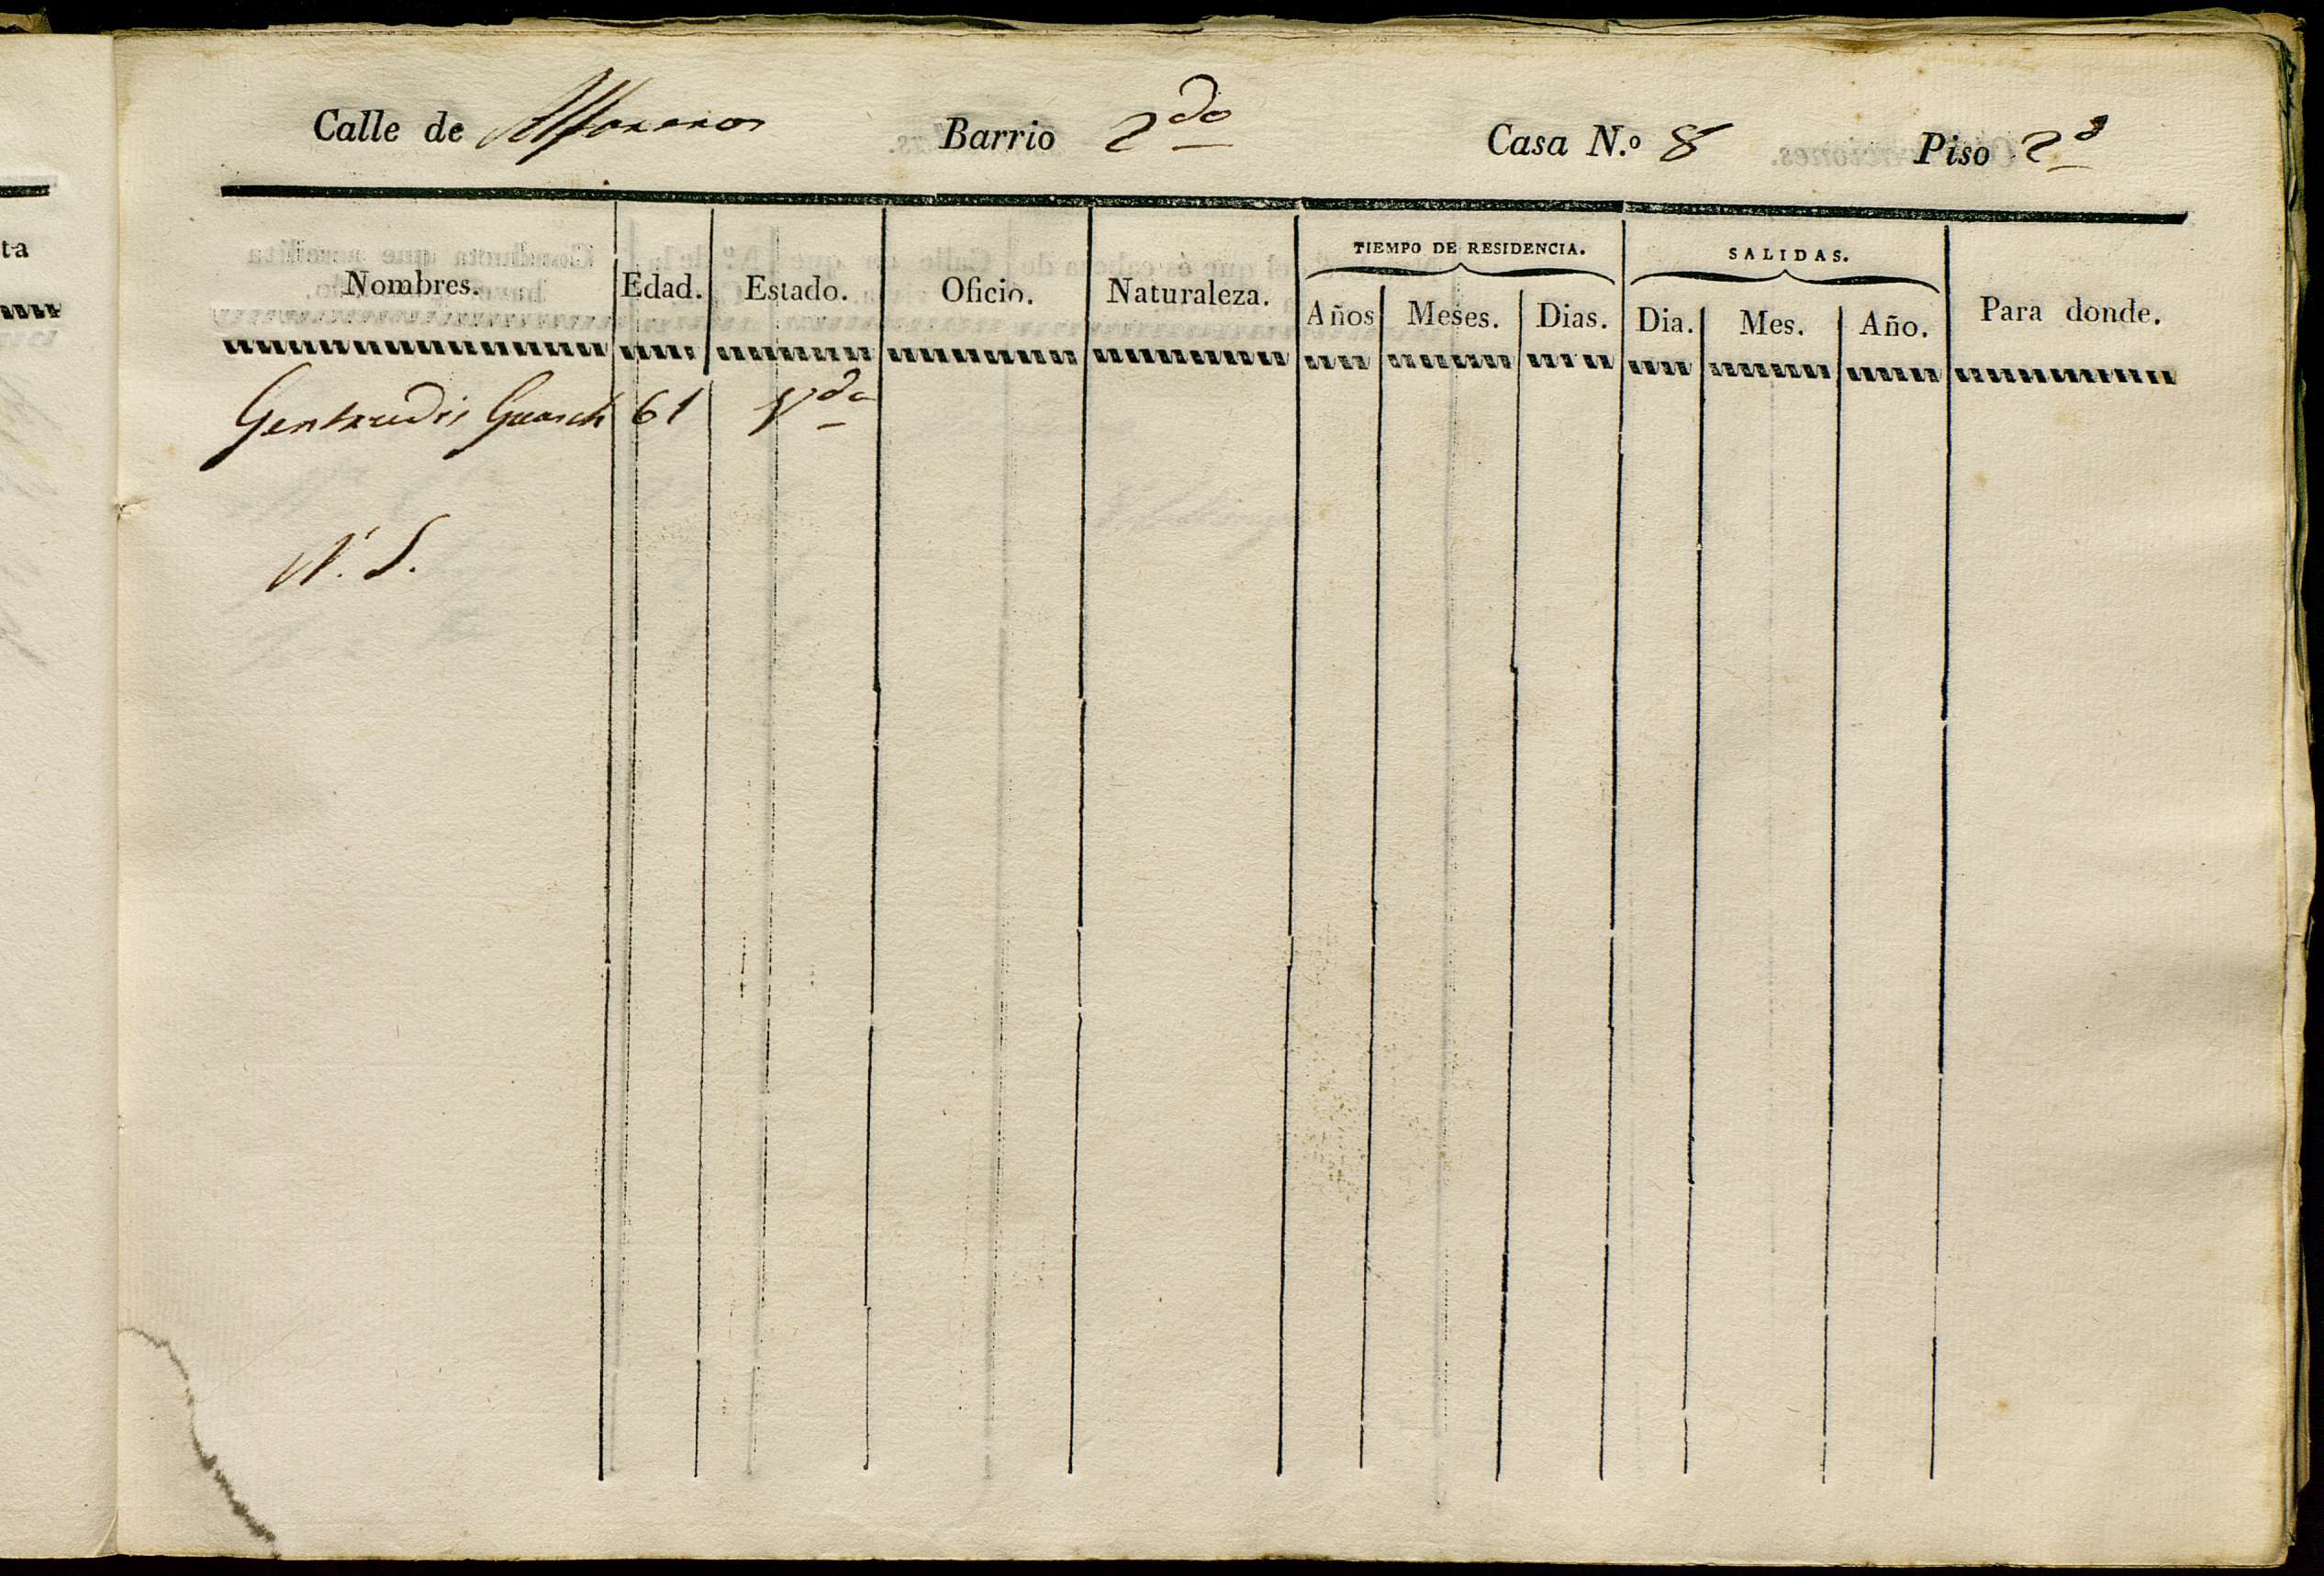 Calle de Assaonadors Barrio 2do Casa N.o 8 Piso 2o
TIEMPO DE RESIDENCIA. SALIDAS.
Nombres. Edad. Estado. Oficio. Naturaleza. Años Meses. Dias. Dia. Mes. Año. Para donde.
Gertrudis Guasch 61 Vda
N. S.
ta